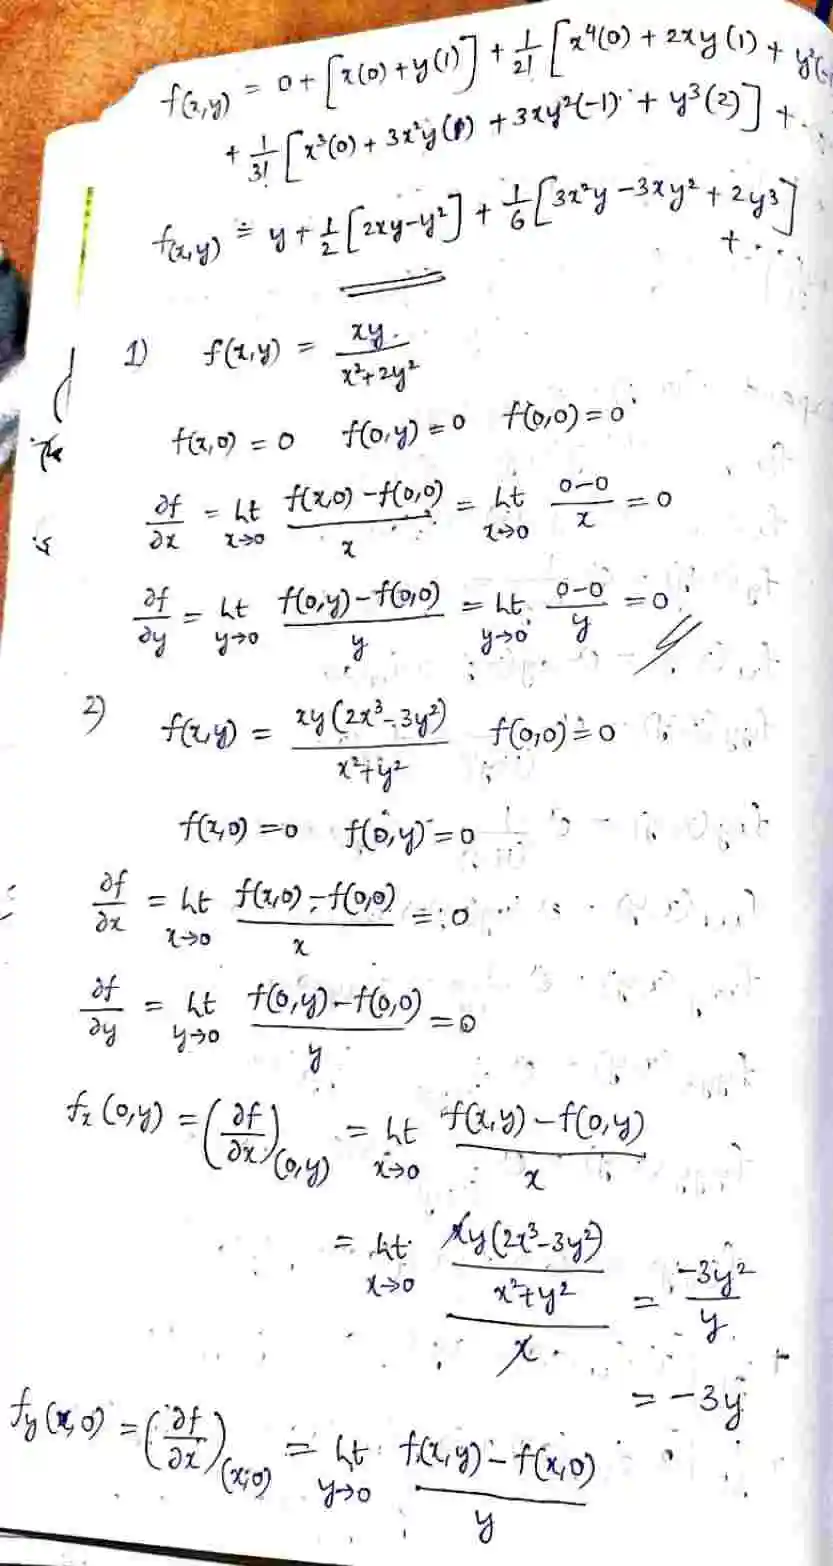 f(x,y) = 0 + [x(0) + y(1)] + 1/2! [x⁴(0) + 2xy(1) + y²(-
+ 1/3! [x³(0) + 3x²y(1) + 3xy²(-1) + y³(2)] + ...
f(x,y) = y + 1/2 [2xy - y²] + 1/6 [3x²y - 3xy² + 2y³]
+ ....
1) f(x,y) = xy / x²+2y²
f(x,0) = 0 f(0,y) = 0 f(0,0) = 0
∂f/∂x = Lt x→0 f(x,0) - f(0,0) / x = Lt x→0 0-0 / x = 0
∂f/∂y = Lt y→0 f(0,y) - f(0,0) / y = Lt y→0 0-0 / y = 0
2) f(x,y) = xy(2x³-3y²) / x²+y² f(0,0) = 0
f(x,0) = 0 f(0,y) = 0
∂f/∂x = Lt x→0 f(x,0) - f(0,0) / x = 0
∂f/∂y = Lt y→0 f(0,y) - f(0,0) / y = 0
fx (0,y) = (∂f/∂x)(0,y) = Lt x→0 f(x,y) - f(0,y) / x
= Lt x→0 xy(2x³-3y²) / x²+y² / x = -3y² / y
= -3y
fy (x,0) = (∂f/∂x)(x,0) = Lt y→0 f(x,y) - f(x,0) / y